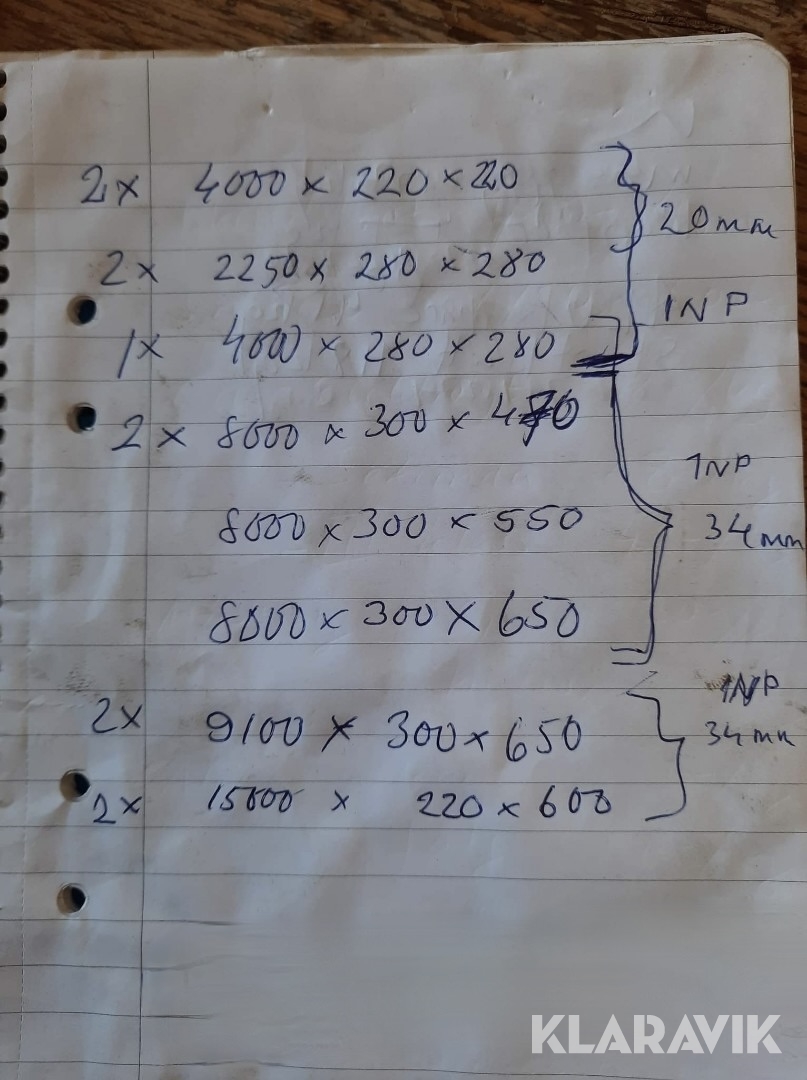 2x 4000 x 220 x 220
20mm
2x 2250 x 280 x 280
INP
1x 4000 x 280 x 280
2x 8000 x 300 x 470
INP
8000 x 300 x 550
34mm
8000 x 300 x 650
INP
2x 9100 x 300 x 650
34mm
2x 15000 x 220 x 600
KLARAVIK